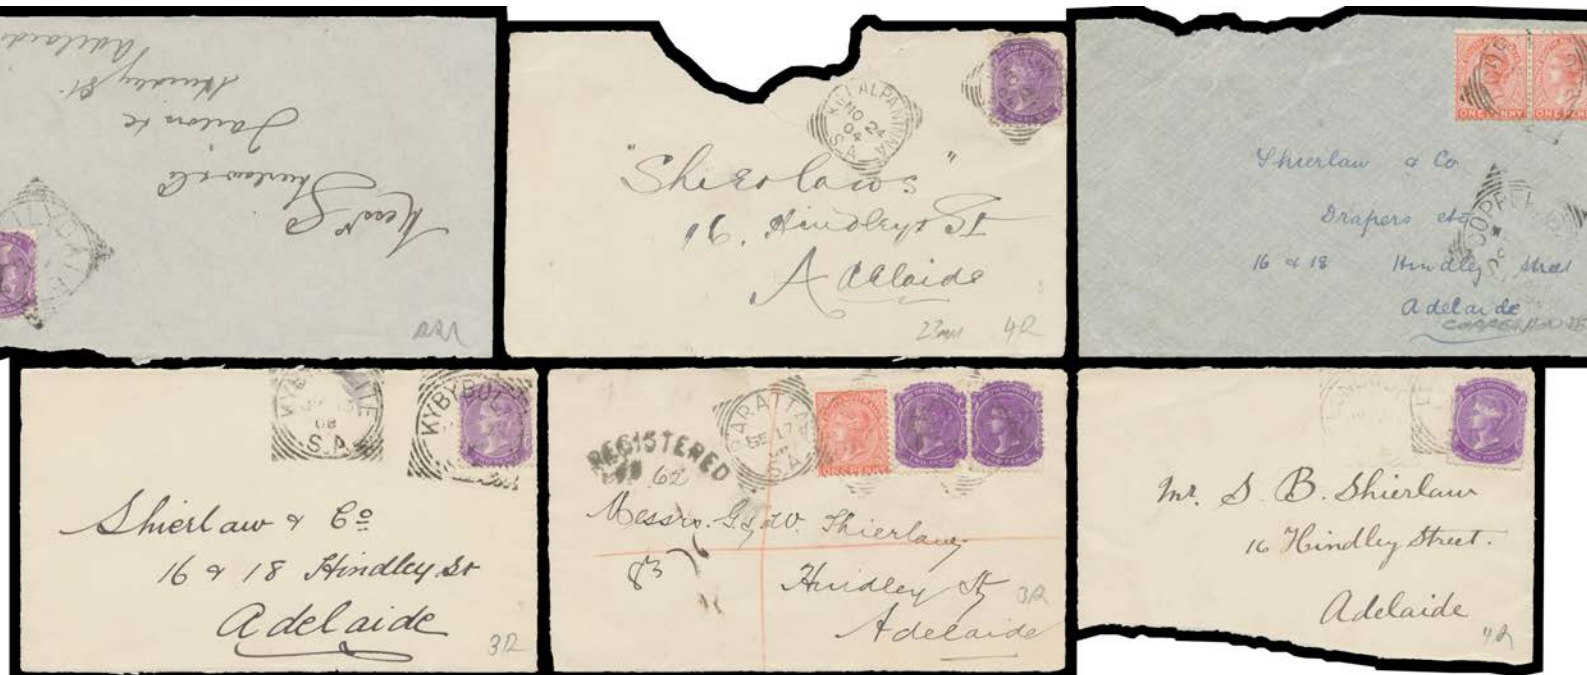 Messrs
Shierlaw & Co
Tailors &c
Hindley St.
Adelaide
KILLALPANINNA
NO 24
04
S.A
"Shierlaws"
16. Hindley St
Adelaide
23mm 4R
ONE PENNY ONE PENNY
Shierlaw & Co
Drapers etc
16 & 18 Hindley Street
Adelaide
KYBYBOLITE
08
S.A.
KYBYBOLITE
Shierlaw & Co
16 & 18 Hindley St
Adelaide
3R
REGISTERED
62
PARATTA
SE 17
S.A.
ONE PENNY TWO PENCE TWO PENCE
Messrs. G & W. Shierlaw
83
Hindley St
Adelaide
3R
Mr. S. B. Shierlaw
16 Hindley Street.
Adelaide
4R